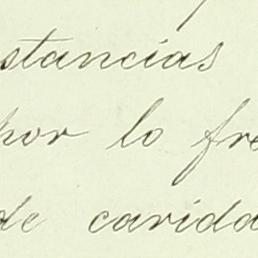 stancias
por lo fre
de carida